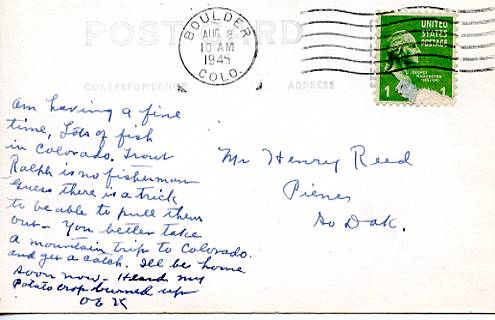 POST CARD
BOULDER
AUG 8
10 AM
1945
COLO.
UNITED
STATES
POSTAGE
GEORGE
WASHINGTON
1 1
CORRESPONDENCE ADDRESS
Am having a fine
time, Lots of fish
in Colorado. Trout
Ralph is no fisherman
Guess there is a trick
to be able to pull them
out - You better take
a mountain trip to Colorado.
and get a catch. Ill be home
soon now - Heard my
Potato crop burned up
Mr Henry Reed
So Dak.